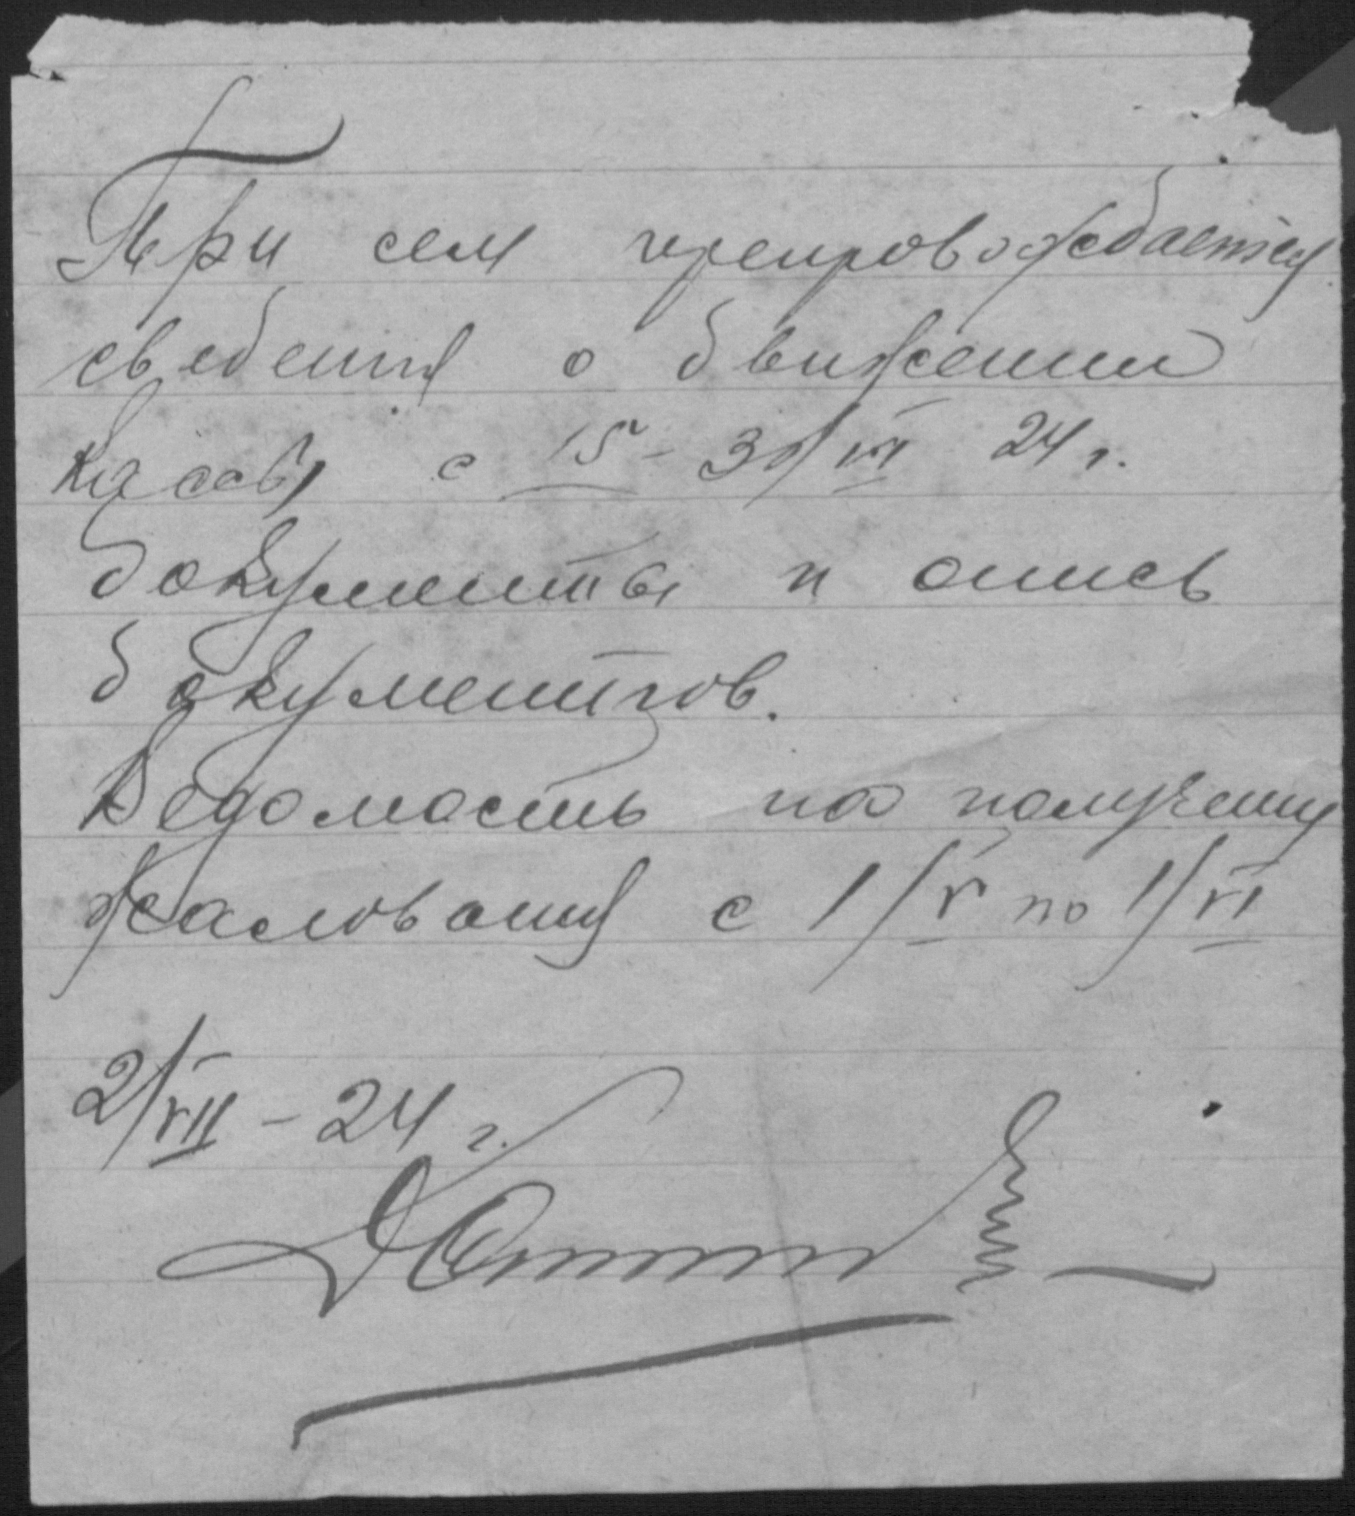 При сем препровождается
сведения о движении
кассы с 15-30/VI 24 г.
документы и опись
документов.
Ведомость на получению
жалования с 1/V по 1/VI
2/VII - 24 г.